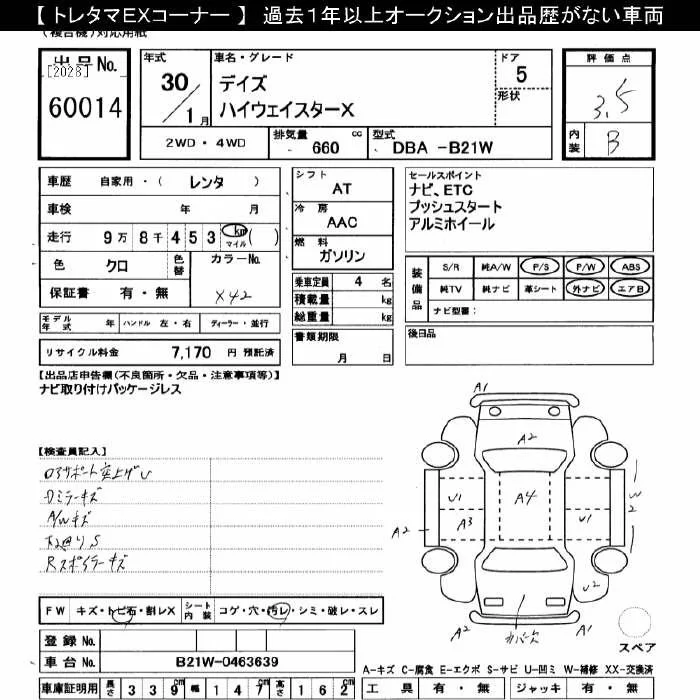 【 トレタマEXコーナー 】 過去1年以上オークション出品歴がない車両
(複合機)対応用紙
出品No.
[2028]
60014
年式
30/1月
車名・グレード
デイズ
ハイウェイスターX
ドア
5
形状
2WD・4WD
排気量
660 cc
型式
DBA -B21W
評価点
3.5
内装
B
車歴 自家用・( レンタ )
車検 年 月
走行 9万 8千 4 5 3 km マイル ( )
色 クロ
色替
カラーNo.
X42
保証書 有・無
シフト
AT
冷房
AAC
燃料
ガソリン
乗車定員 4 名
積載量 kg
総重量 kg
セールスポイント
ナビ、ETC
プッシュスタート
アルミホイール
装備品
S/R 純A/W P/S P/W ABS
純TV 純ナビ 革シート 外ナビ エアB
ナビ型番:
モデル年式 年 ハンドル 左・右 ディーラー・並行
リサイクル料金 7,170 円 預託済
書類期限
月 日
後日品
【出品店申告欄(不良箇所・欠品・注意事項等)】
ナビ取り付けパッケージレス
【検査員記入】
ロアサポート突上げU
Dミラーキズ
A/Wキズ
下廻りS
Rスポイラーキズ
A1
A2
U1
A4
A3
U1
W2
A2
U2
A2
カバーキズ
A1
スペア
FW キズ・トビ石・割レX シート内装 コゲ・穴・汚レ・シミ・破レ・スレ
登録No.
車台No. B21W-0463639
車庫証明用 長さ 3 3 9 cm 幅 1 4 7 cm 高さ 1 6 2 cm
A-キズ C-腐食 E-エクボ S-サビ U-凹ミ W-補修 XX-交換済
工具 有・無 ジャッキ 有・無